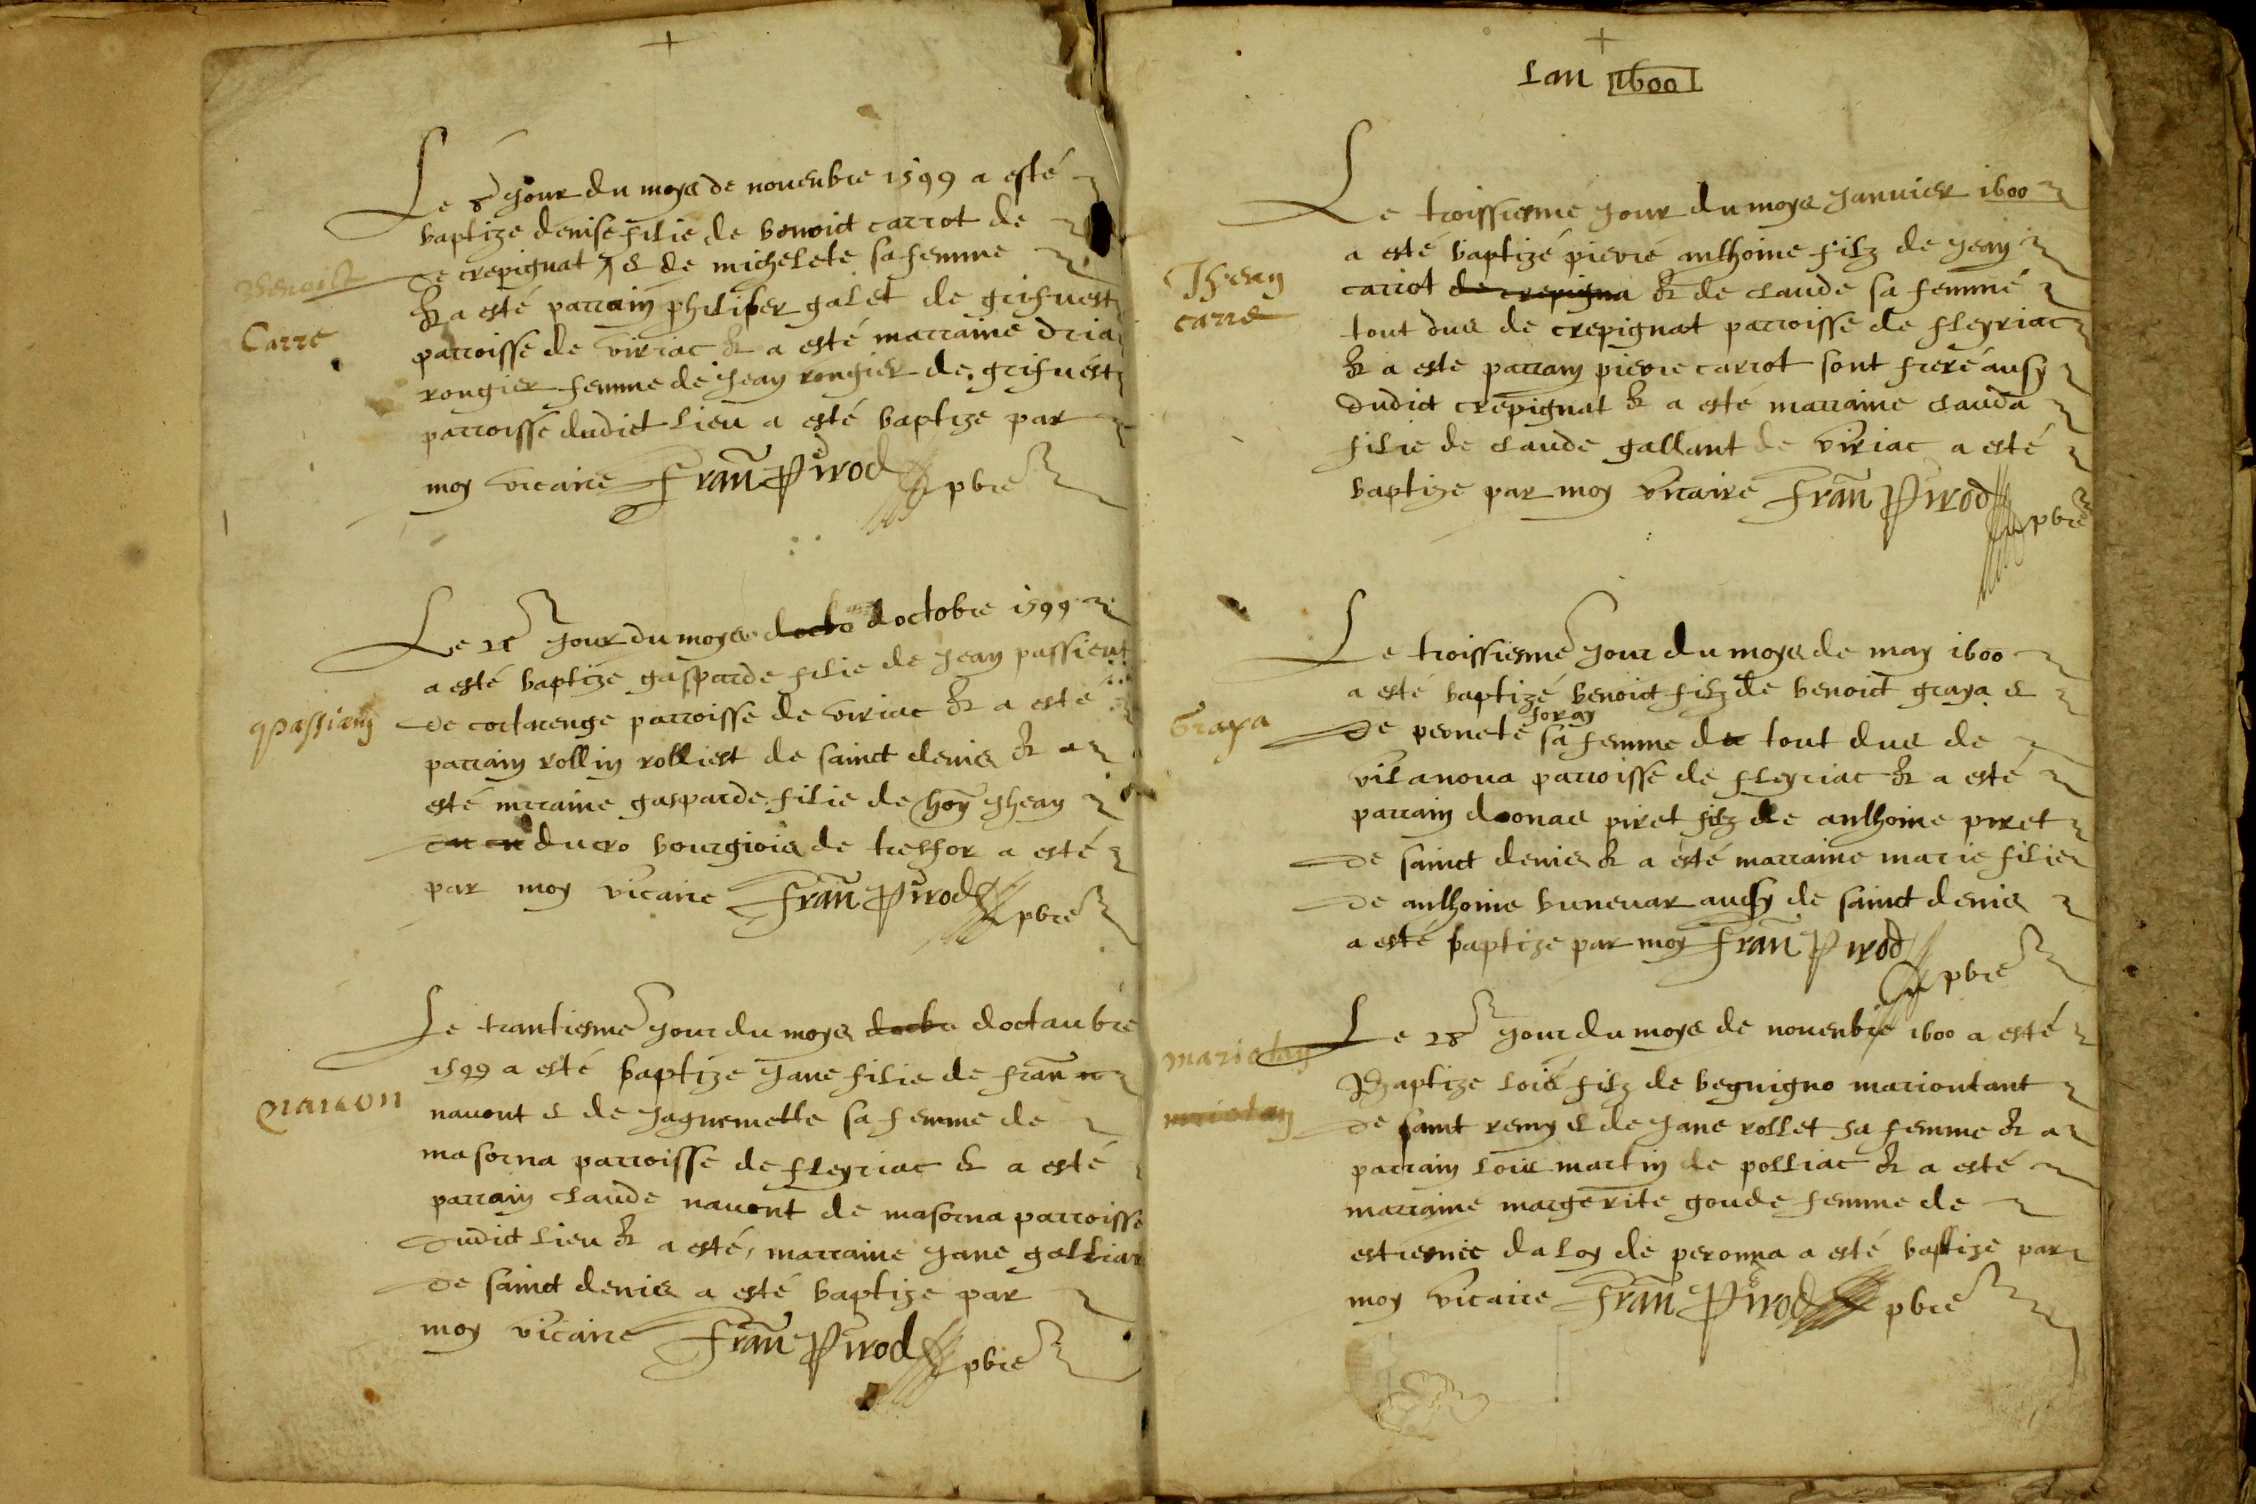 Benoist
Carre
Le 8 jour du moys de novenbre 1599 a esté
baptize denise filie de benoict carrot de
de crepignat & de michelete sa femme
& a esté parrain philiber galet de grifuest
parroisse de viriac & a esté marraine dria
rongier femme de jean rongier de grifuest
parroisse dudict lieu a esté baptize par
moy vicaire Fran Pirod pbre
passiant
Le 25 jour du moys docto doctobre 1599
a esté baptize gasparde filie de jean passient
de cortarenge parroisse de viriac & a esté
parrain rollin rolliest de sainct denis & a
esté mrraine gasparde filie de hon jhean
ducro bourgiois de treffor a esté
par moy vicaire Fran Pirod pbre
Le trantiesme jour du moys docto doctaubre
1599 a esté baptize jane filie de fran
navont & de jaquemette sa femme de
masorna parroisse de fleyriac & a esté
parrain claude navont de masorna parroisse
dudict lieu & a esté marraine jane galliar
de sainct denis a esté baptize par
moy vicaire Fran Pirod pbre
Lan 1600
Jhean
carre
Le troissiesme jour du moys janvier 1600
a esté baptizé pierre anthoine filz de jean
carrot de crepigna & de claude sa femme
tout dus de crepignat parroisse de fleyriac
& a esté parrain pierre carrot sont frere ausy
dudict crepignat & a esté marraine clauda
filie de claude gallant de viriac a esté
baptize par moy vicaire Fran Pirod
pbre
Graya
Le troissiesme jour du moys de may 1600
a esté baptizé benoict filz de benoict graya &
foray
de pernete sa femme de tout dus de
vilanova parroisse de fleyriac & a esté
parrain doonas piret filz de anthoine piret
de sainct denis & a esté marraine marie filie
de anthoine bunevar ausy de sainct denis
a esté baptize par moy Fran Pirod
pbre
mariotan
mariotan
Le 28 jour du moys de novenbre 1600 a esté
Baptize lois filz de beguigno mariontant
de saint remy & de jane rollet sa femme & a
parrain lois martin de polliac & a esté
marraine margerite goude femme de
estiesnie daloy de peronna a esté baptize par
moy vicaire Fran Pirod pbre